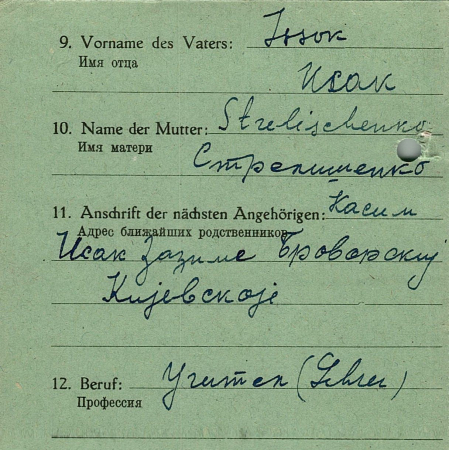 9. Vorname des Vaters: Issok
Имя отца
Исак
10. Name der Mutter: Strelischenko
Имя матери
Стрелишенко
11. Anschrift der nächsten Angehörigen: Касим
Адрес ближайших родственников
Исак Зазиме Броварский
Кијевскоје
12. Beruf: Учител (Lehrer)
Профессия